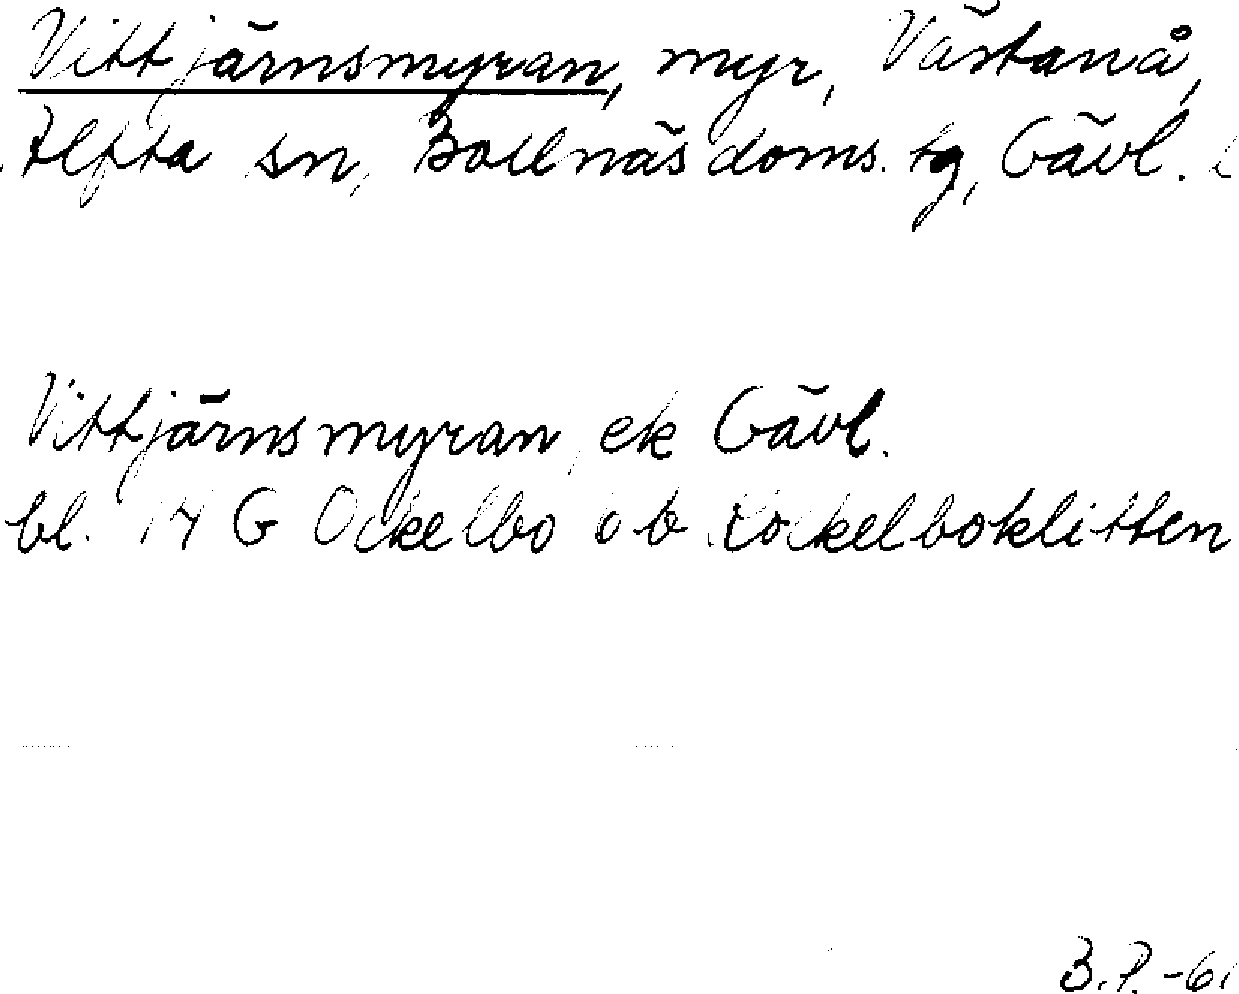 Vittjärnsmyran, myr, Västanå,
Alfta sn, Bollnäs doms. tg, Gävl. l
Vittjärnsmyran, ek Gävl.
bl. 14 G Ockelbo
B.P. -61